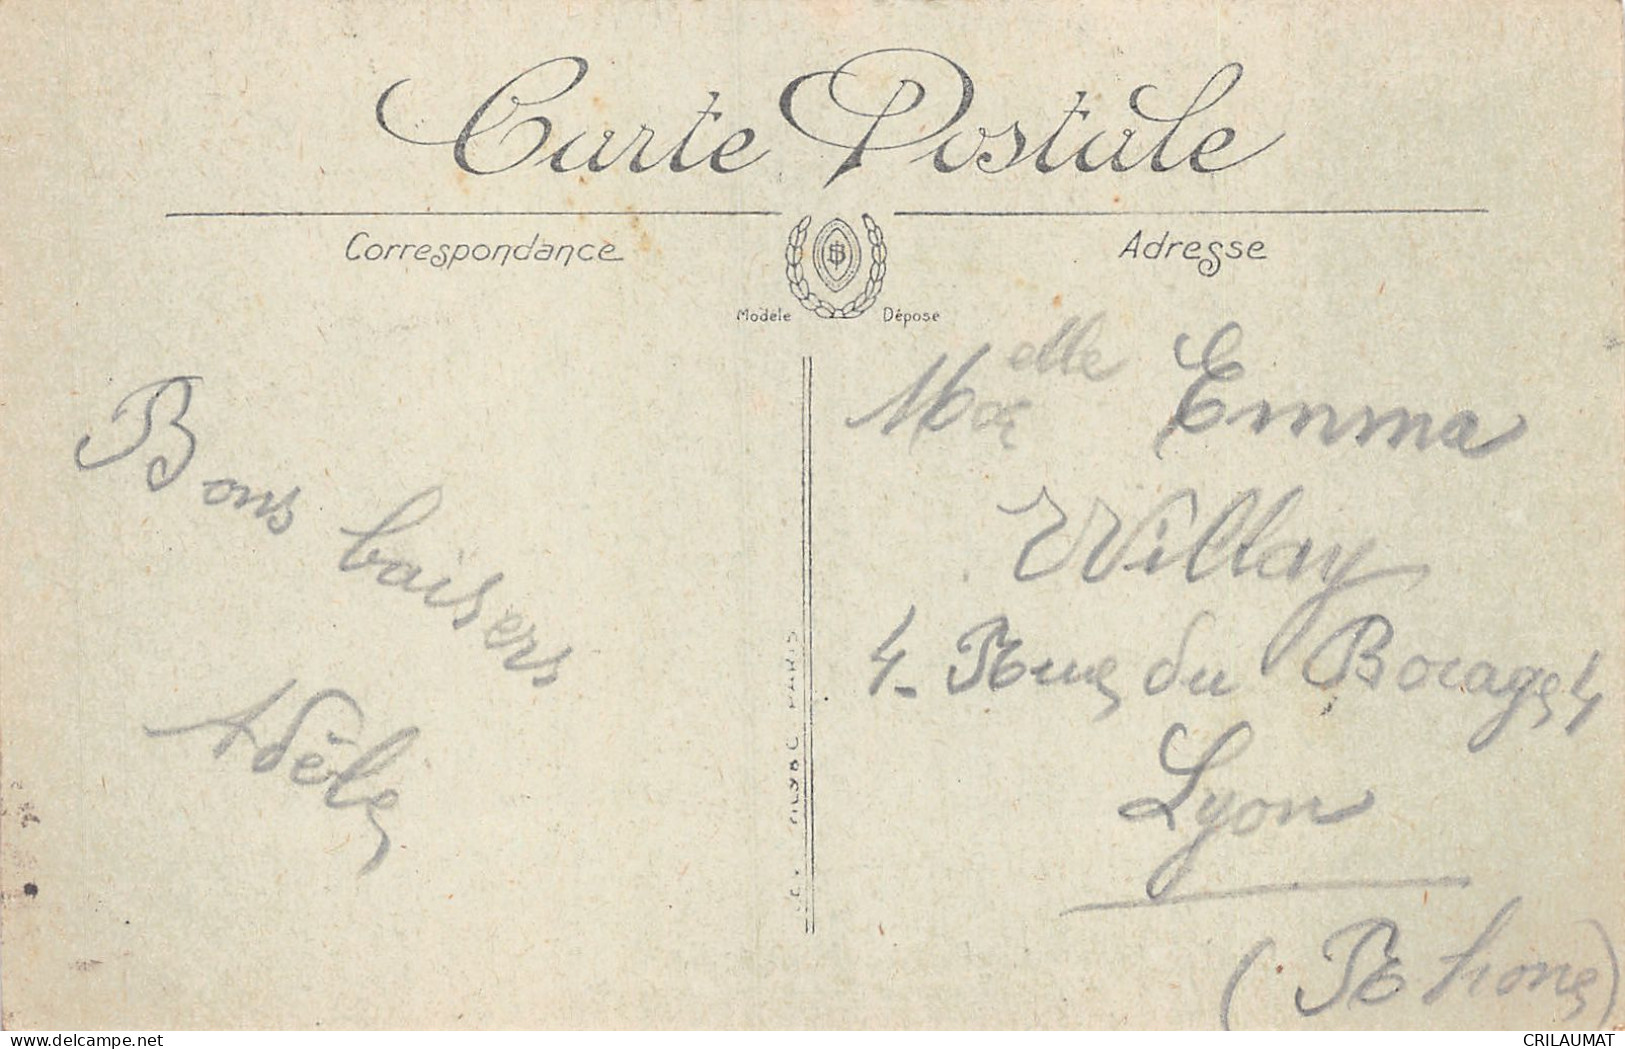 Carte Postale
Correspondance
Adresse
Modèle Déposé
Bons baisers
Adèle
Melle Emma
Willay
4 - Rue du Bocage 4
Lyon
(Rhône)
PARIS
delcampe.net
CRILAUMAT